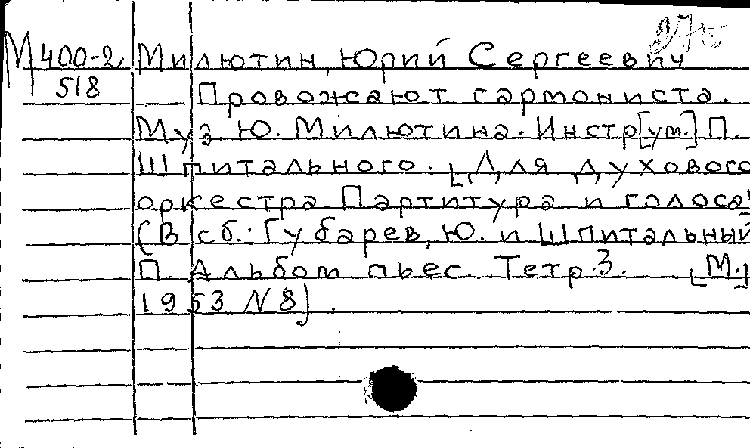 М 400-2 Милютин, Юрий Сергеевич
518 Провожают гармониста.
Муз. Ю. Милютина. Инстр[ум.] П.
Шпитального. [Для духового
оркестра. Партитура и голоса]
(В сб.: Губарев, Ю. и Шпитальный
П. Альбом пьес. Тетр. 3. [М.,]
1953 N 8).